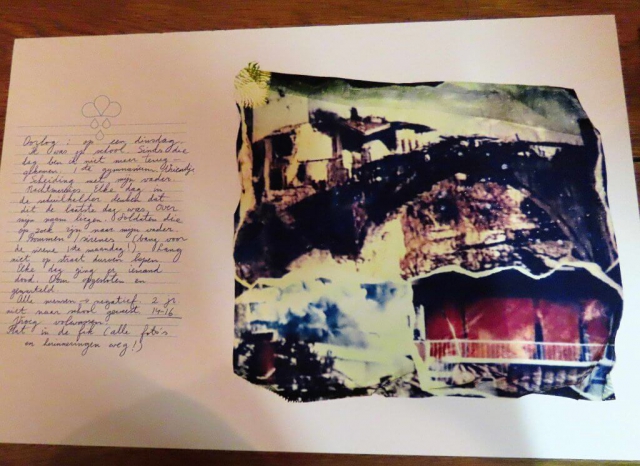 Oorlog : op een dinsdag
Ik was op school. Sinds die
dag ben ik niet meer terug-
gekomen / de gymnasium / vriendjes
/ Scheiding met mijn vader
Rechtmeesters. Elke dag in
de schuilkelder denken dat
dit de laatste dag was. Over
mijn ogen liezen. Soldaten die
op zoek zijn naar mijn vader.
/ Bommen / nieuws (bang voor
de sirene (de maandag!) / Lang
niet op straat durven lopen
Elke dag ging er iemand
dood. Oom opgesloten en
gemarteld.
Alle mensen → negatief. 2 jr.
niet naar school geweest 14-16
Vroeg volwassen!
Flat in de fik (alle foto's
en herinneringen weg!)